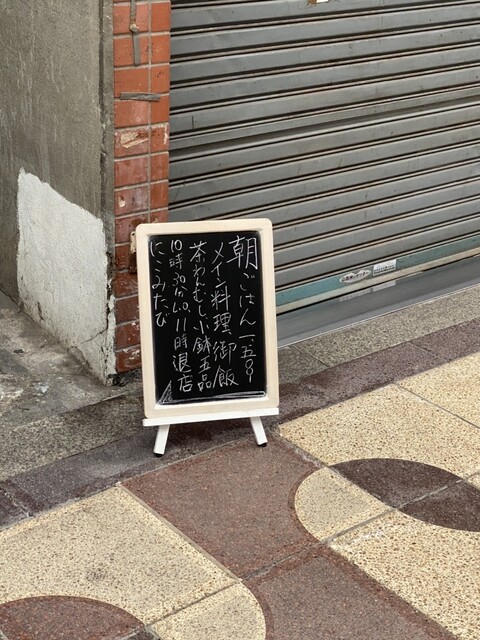 朝ごはん 一、五〇〇-
メイン料理 御飯
茶わんむし 小鉢五品
10時30分L.O. 11時退店
にこみたび